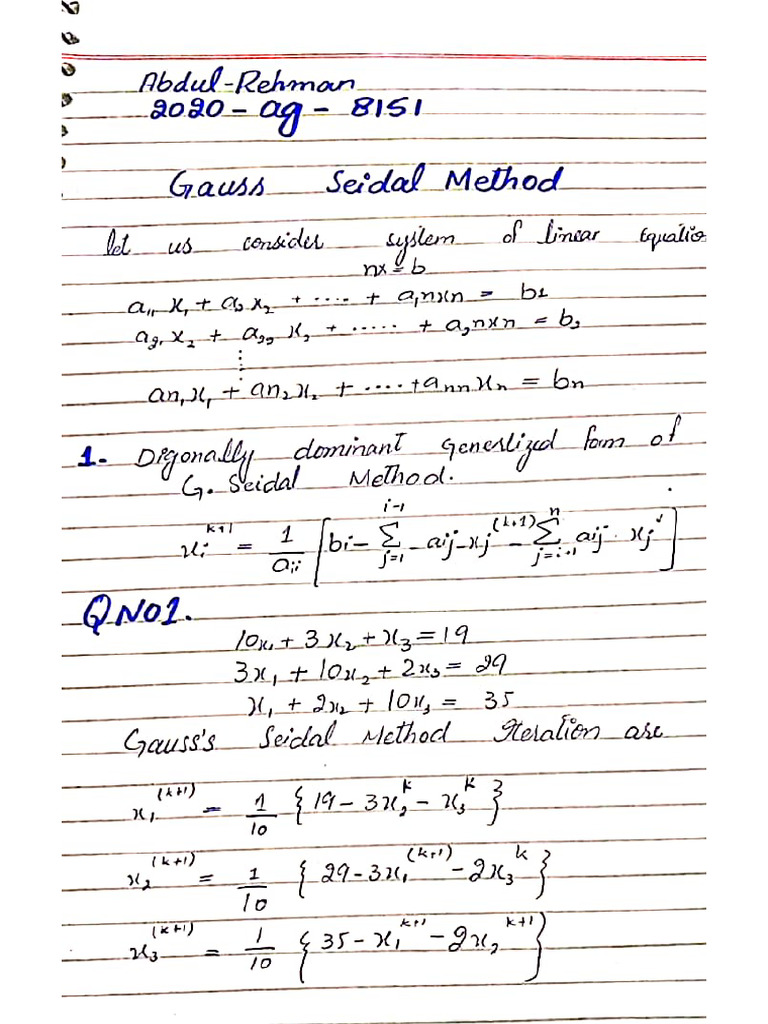 Abdul-Rehman
2020-ag-8151
Gauss Seidal Method
let us consider system of linear Equatio
nx=b
a₁₁ x₁ + a₂ x₂ + .... + a₁nxn = b1
a₂₁ x₂ + a₂₂ x₂ + ..... + a₂nxn = b₂
⋮
an₁x₁ + an₂x₂ + ....+annxn = bn
1. Digonally dominant generlized form of
G. Seidal Method.
xᵢ^(k+1) = 1/aᵢᵢ [bi - Σ_(j=1)^(i-1) - aij-xj^(k+1) - Σ_(j=i+1)^n aij. xj]
QNO1.
10x₁ + 3x₂ + x₃ = 19
3x₁ + 10x₂ + 2x₃ = 29
x₁ + 2x₂ + 10x₃ = 35
Gauss's Seidal Method Iteration are
x₁^(k+1) = 1/10 {19 - 3x₂^k - x₃^k}
x₂^(k+1) = 1/10 {29 - 3x₁^(k+1) - 2x₃^k}
x₃^(k+1) = 1/10 {35 - x₁^k+1 - 2x₂^k+1}